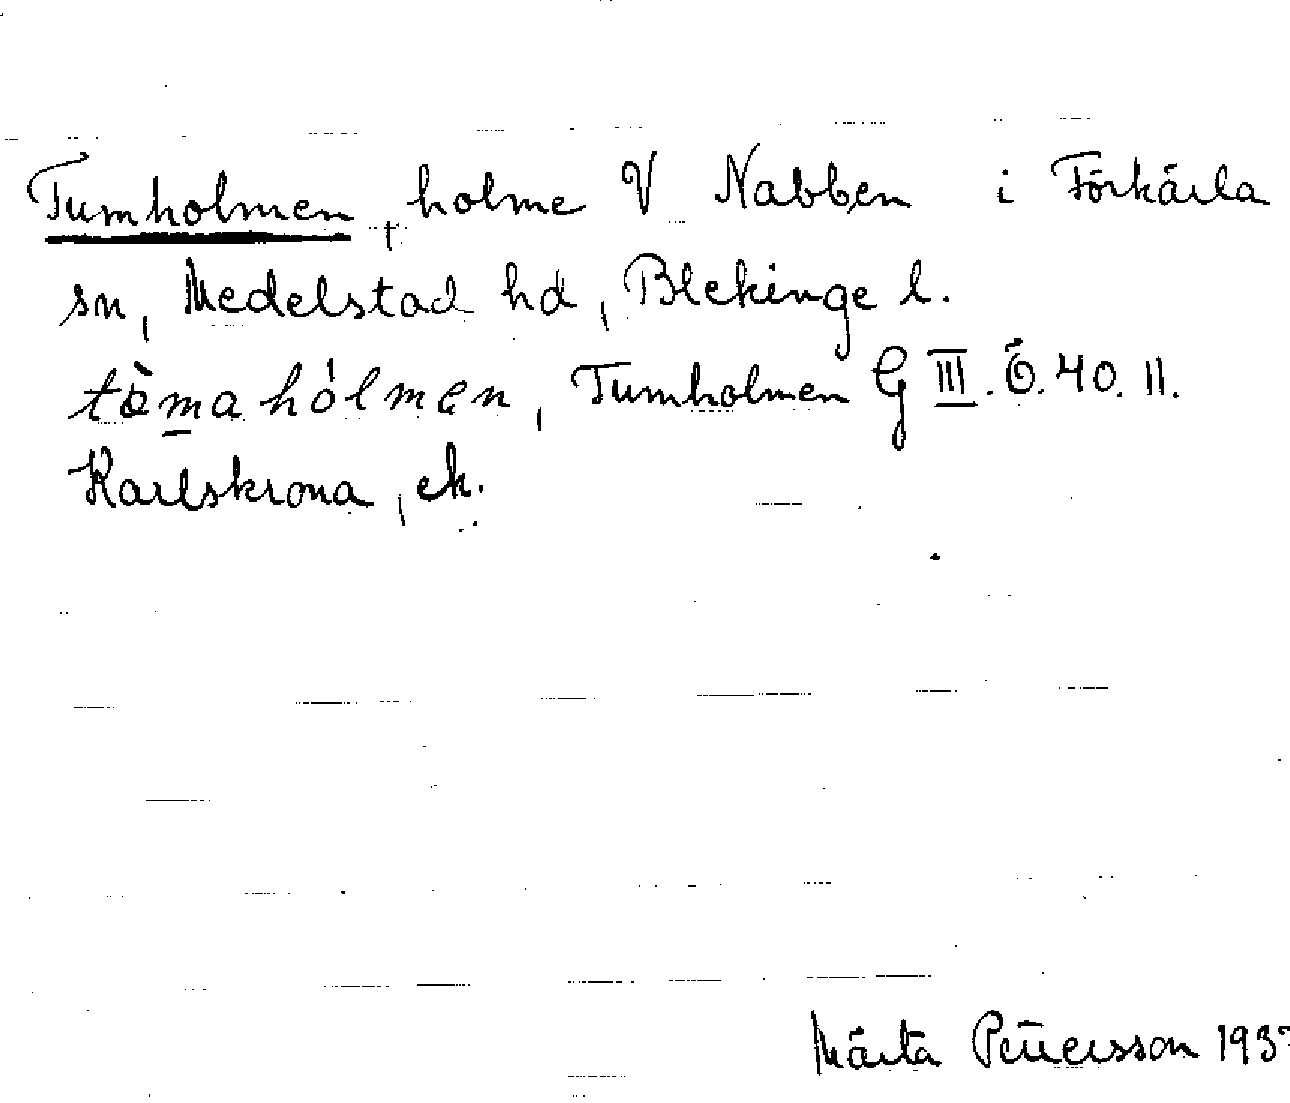 Tumholmen, holme V Nabben i Förkärla
sn, Medelstad hd, Blekinge l.
tòmahólmen, Tumholmen G III. Ö. 40. 11.
Karlskrona, ek.
Märta Pettersson